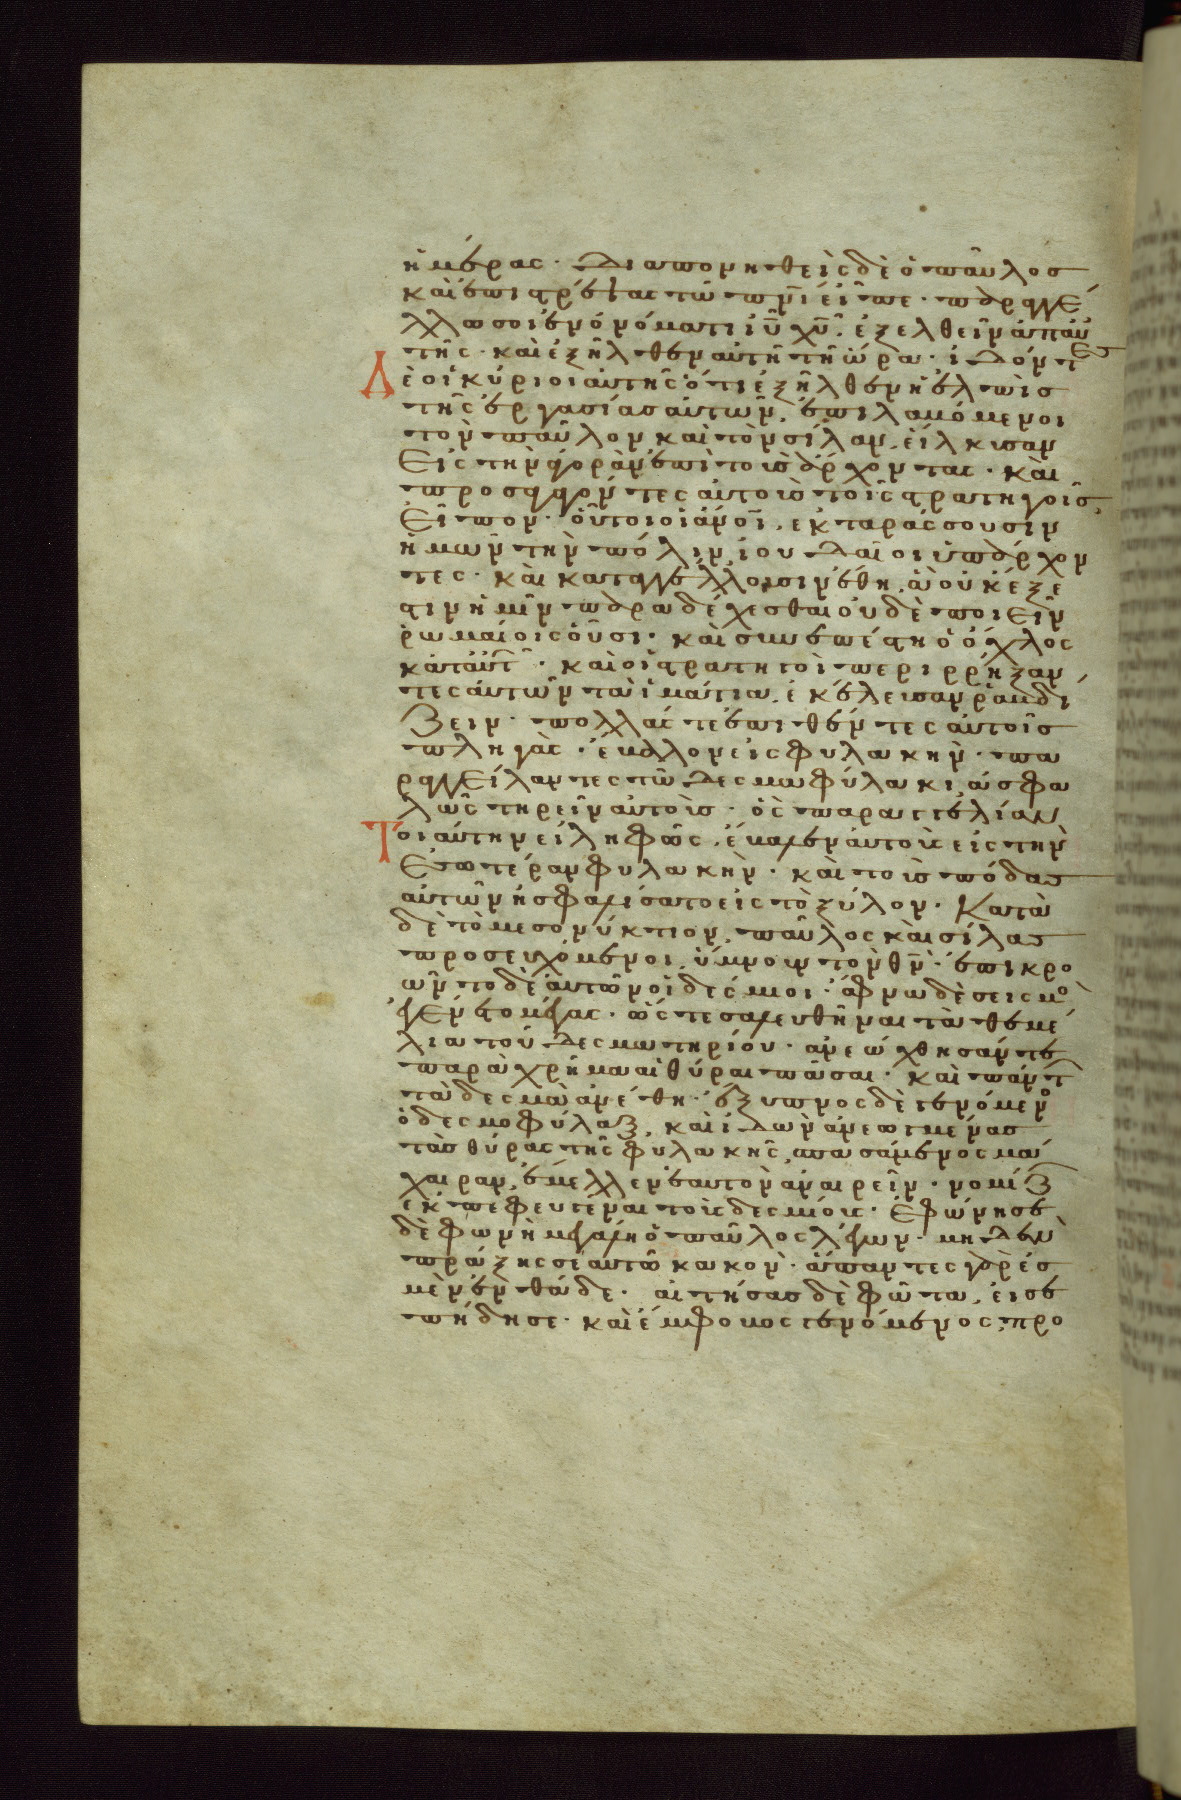 ἡμέρας · διαπονηθεὶς δὲ ὁ παῦλος
καὶ ἐπιστρέψας τῶ πν̅ι εἶπε · παραγγέ
λλω σοι ἐν ὀνόματι ἰυ̅ χυ̅ · ἐξελθεῖν ἀπ αυ
τῆς · καὶ ἐξῆλθεν αὐτῆ τῆ ὥρα · ἰδόντες
Δὲ οἱ κύριοι αὐτῆς ὅτι ἐξῆλθεν ἡ ἐλπὶς
τῆς ἐργασίας αὐτῶν, ἐπιλαβόμενοι
τὸν παῦλον καὶ τὸν σίλαν, εἵλκυσαν
εἰς τὴν ἀγορὰν ἐπὶ τοὺς ἄρχοντας · καὶ
προσαγαγόντες αὐτοὺς τοῖς στρατηγοῖς,
εἶπον · οὗτοι οἱ ἄνο̅ι, ἐκταράσσουσιν
ἡμῶν τὴν πόλιν, ἰουδαῖοι ὑπάρχον
τες · καὶ καταγγέλλουσιν ἔθη, ἃ οὐκ ἔξε
στιν ἡμῖν παραδέχεσθαι οὐδὲ ποιεῖν
ῥωμαίοις οὖσι · καὶ συνεπέστη ὁ ὄχλος
κατ αὐτ · καὶ οἱ στρατηγοὶ περιρρήξαν
τες αὐτῶν τὰ ἱμάτια, ἐκέλευσαν ῥαβδί
ζειν · πολλάς τε ἐπιθέντες αὐτοῖς
πληγὰς · ἔβαλλον εἰς φυλακὴν · πα
ραγγείλαντες τῶ δεσμοφύλακι, ἀσφα
λῶς τηρεῖν αὐτοὺς · ὃς παραγγελίαν
Τοιαύτην εἰληφὼς, ἔβαλεν αὐτοὺς εἰς τὴν
ἐσωτέραν φυλακὴν · καὶ τοὺς πόδας
αὐτῶν ἠσφαλίσατο εἰς τὸ ξύλον · Κατὰ
δὲ τὸ μεσονύκτιον, παῦλος καὶ σίλας
προσευχόμενοι, ὕμνουν τὸν θν̅ · ἐπηκρο
ῶντο δὲ αὐτῶν οἱ δέσμιοι · ἄφνω δὲ σεισμο
ἐγένετο μέγας · ὥστε σαλευθῆναι τὰ θεμέ
λια τοῦ δεσμωτηρίου · ἀνεώχθησάν τε
παραχρῆμα αἱ θύραι πᾶσαι · καὶ πάντ
τὰ δεσμὰ ἀνέθη · ἔξυπνος δὲ γενόμενο
ὁ δεσμοφύλαξ, καὶ ἰδὼν ἀνεωγμένας
τὰς θύρας τῆς φυλακῆς, σπασάμενος μά
χαιραν, ἔμελλεν ἑαυτὸν ἀναιρεῖν · νομίζ
ἐκπεφευγέναι τοὺς δεσμίους · ἐφώνησε
δὲ φωνῆ μεγάλη ὁ παῦλος λέγων · μηδὲν
πράξης σεαυτῶ κακὸν · ἅπαντες γάρ ἐσ
μὲν ἐνθάδε · αἰτήσας δὲ φῶτα, εἰσε
πήδησε · καὶ ἔντρομος γενόμενος, προ